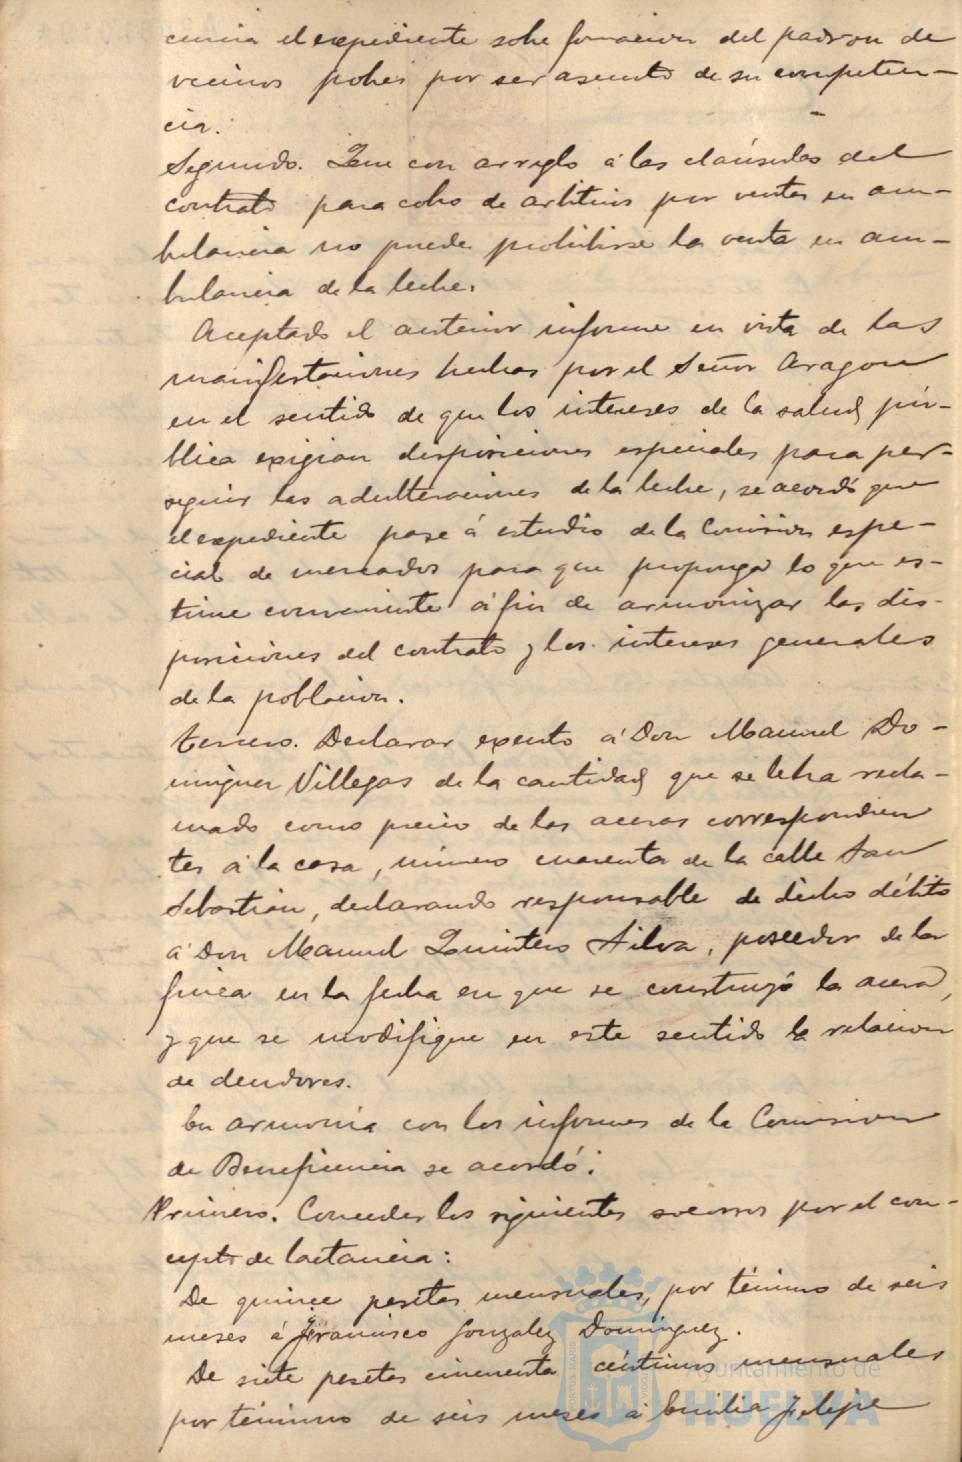 cencia el expediente sobre formacion del padron de
vecinos pobres por ser asunto de su competen-
cia.
Segundo. Que con arreglo á las claúsulas del
contrato para cobro de arbitrios por ventas en am-
bulancia no puede prohibirse la venta en am-
bulancia de la leche.
Aceptado el anterior informe en vista de las
manifestaciones hechas por el Señor Aragon
en el sentido de que los intereses de la salud pú-
blica exigian disposiciones especiales para per-
seguir las adulteraciones de la leche, se acordó que
el expediente pase á estudio de la Comision espe-
cial de mercados para que proponga lo que es-
time conveniente á fin de armonizar las dis-
posiciones del contrato y los intereses generales
de la poblacion.
Tercero. Declarar exento á Don Manuel Do-
minguez Villegas de la cantidad que se le ha recla-
mado como precio de las aceras correspondien
tes á la casa, número cuarenta de la calle San
Sebastian, declarando responsable de dicho débito
á Don Manuel Quintero Silva, poseedor de la
finca en la fecha en que se construyó la acera,
y que se modifique en este sentido la relacion
de deudores.
En armonía con los informes de la Comision
de Beneficencia se acordó:
Primero. Conceder los siguientes socorros por el con-
cepto de lactancia:
De quince pesetas mensuales, por término de seis
meses á Francisco Gonzalez Domínguez.
De siete pesetas cincuenta céntimos mensuales
por término de seis meses á Emilia Felipe
Ayuntamiento de
HUELVA